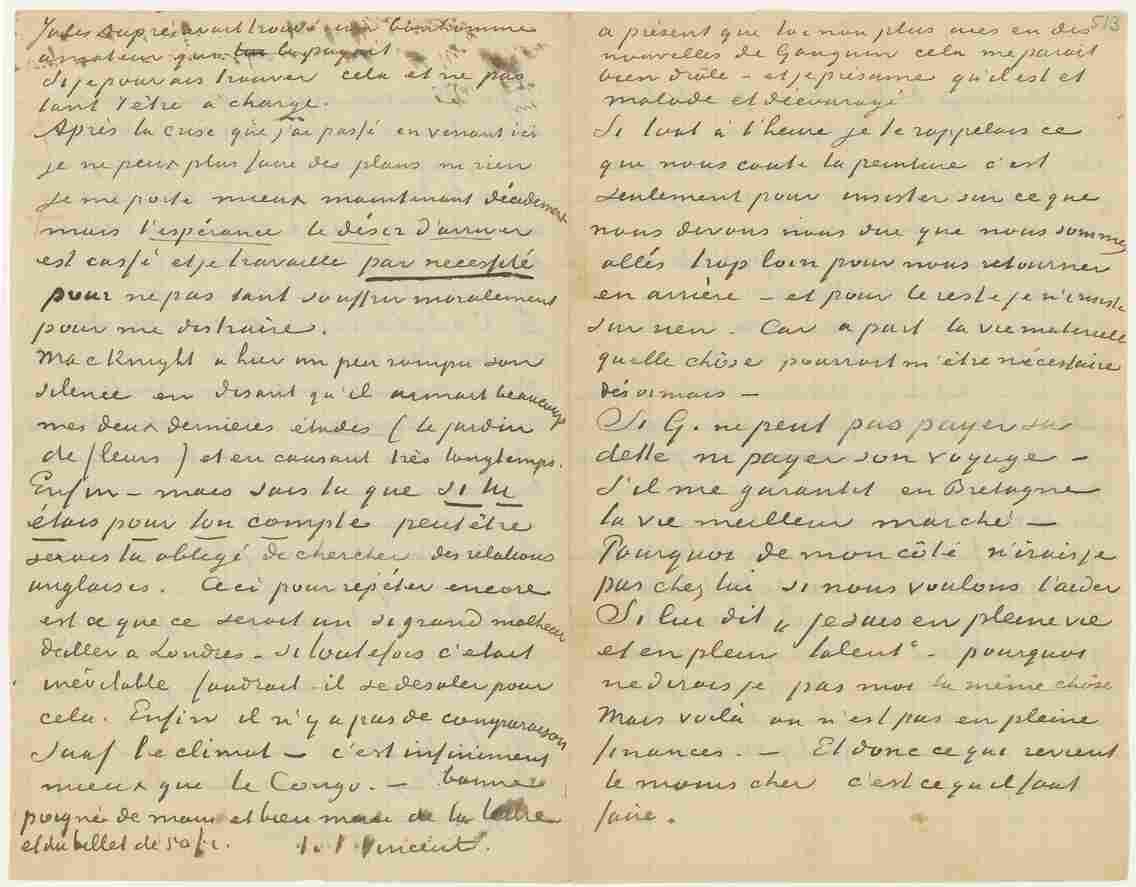 Jules Dupré avait trouvé un bonhomme
amateur qui le payait
Si je pouvais trouver cela et ne pas
tant t'être à charge.
Après la crise que j'ai passé en venant ici
je ne peux plus faire des plans ni rien
je me porte mieux maintenant décidement
mais l'espérance le désir d'arriver
est cassé et je travaille par necessité
pour ne pas tant souffrir moralement
pour me distraire.
MacKnight a hier un peu rompu son
silence en disant qu'il aimait beaucoup
mes deux dernières études (le jardin
de fleurs) et en causant très longtemps.
Enfin – mais sais tu que si tu
étais pour ton compte peutêtre
serais tu obligé de chercher des relations
anglaises. Ceci pour répéter encore
est ce que ce serait un si grand malheur
d'aller a Londres – si toutefois c'était
inévitable faudrait-il se desoler pour
cela. Enfin il n'y a pas de comparaison
sauf le climat – c'est infiniment
mieux que le Congo. – bonne
poignée de main et bien merci de ta lettre
et du billet de 50 fr. t. à t. Vincent.
513
a présent que toi non plus aies eu des
nouvelles de Gauguin cela me parait
bien drôle – et je présume qu'il est et
malade et découragé
Si tout à l'heure je te rappelais ce
que nous coute la peinture c'est
seulement pour insister sur ce que
nous devons nous dire que nous sommes
allés trop loin pour nous retourner
en arrière – et pour le reste je n'insiste
sur rien. Car a part la vie materielle
quelle chôse pourrait m'être nécessaire
désormais –
Si G. ne peut pas payer sa
dette ni payer son voyage –
S'il me garantit en Bretagne
la vie meilleur marché –
Pourquoi de mon côté n'irais je
pas chez lui si nous voulons l'aider
Si lui dit „je suis en pleine vie
et en plein talent“ – pourquoi
ne dirais je pas moi la même chôse
Mais voilà on n'est pas en pleine
finances. – Et donc ce qui revient
le moins cher c'est ce qu'il faut
faire.